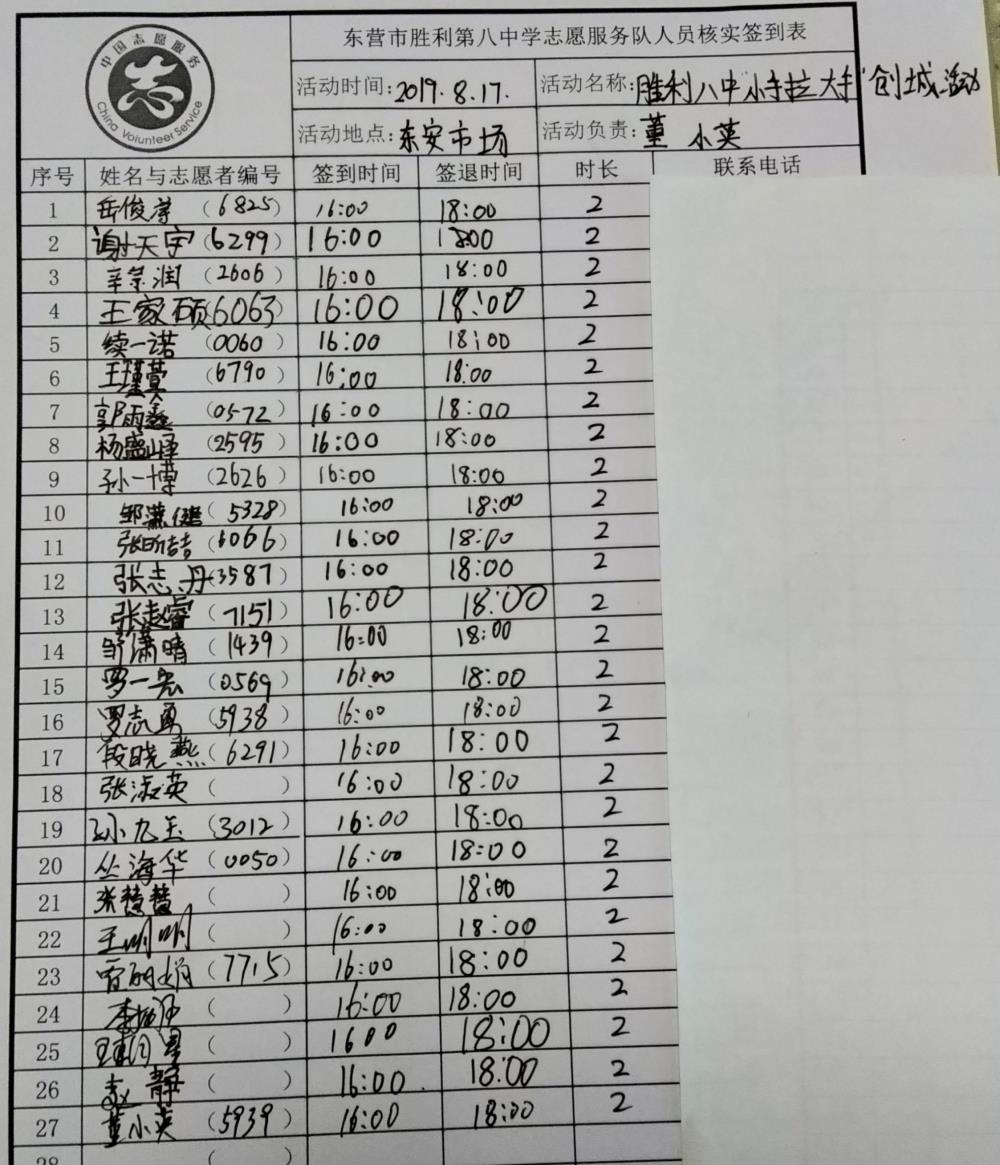 中国志愿服务
志
China Volunteer Service
东营市胜利第八中学志愿服务队人员核实签到表
活动时间:2019.8.17. 活动名称:胜利八中"小手拉大手"创城活动
活动地点:东安市场 活动负责:董小英
序号 姓名与志愿者编号 签到时间 签退时间 时长 联系电话
1 岳俊 (6825) 16:00 18:00 2
2 谢天宇(6299) 16:00 1800 2
3 辛崇润 (2606) 16:00 18:00 2
4 王家硕(6063) 16:00 18:00 2
5 续一诺 (0060) 16:00 18:00 2
6 王瑾萱 (6790) 16:00 18:00 2
7 郭雨鑫 (0572) 16:00 18:00 2
8 杨盛峄 (2595) 16:00 18:00 2
9 孙一博 (2626) 16:00 18:00 2
10 邹潇健 (5328) 16:00 18:00 2
11 张昕喆 (6066) 16:00 18:00 2
12 张志丹(3587) 16:00 18:00 2
13 张赵睿 (7151) 16:00 18:00 2
14 邹潇晴 (1439) 16:00 18:00 2
15 罗一宏 (0569) 16:00 18:00 2
16 罗志勇 (5938) 16:00 18:00 2
17 段晓燕 (6291) 16:00 18:00 2
18 张淑英 ( ) 16:00 18:00 2
19 孙九玉 (3012) 16:00 18:00 2
20 丛海华 (0050) 16:00 18:00 2
21 张慧慧 ( ) 16:00 18:00 2
22 王明明 ( ) 16:00 18:00 2
23 雷丽娟 (7715) 16:00 18:00 2
24 李 ( ) 16:00 18:00 2
25 ( ) 1600 18:00 2
26 赵静 ( ) 16:00 18:00 2
27 董小英 (5939) 16:00 18:00 2
28 ( )